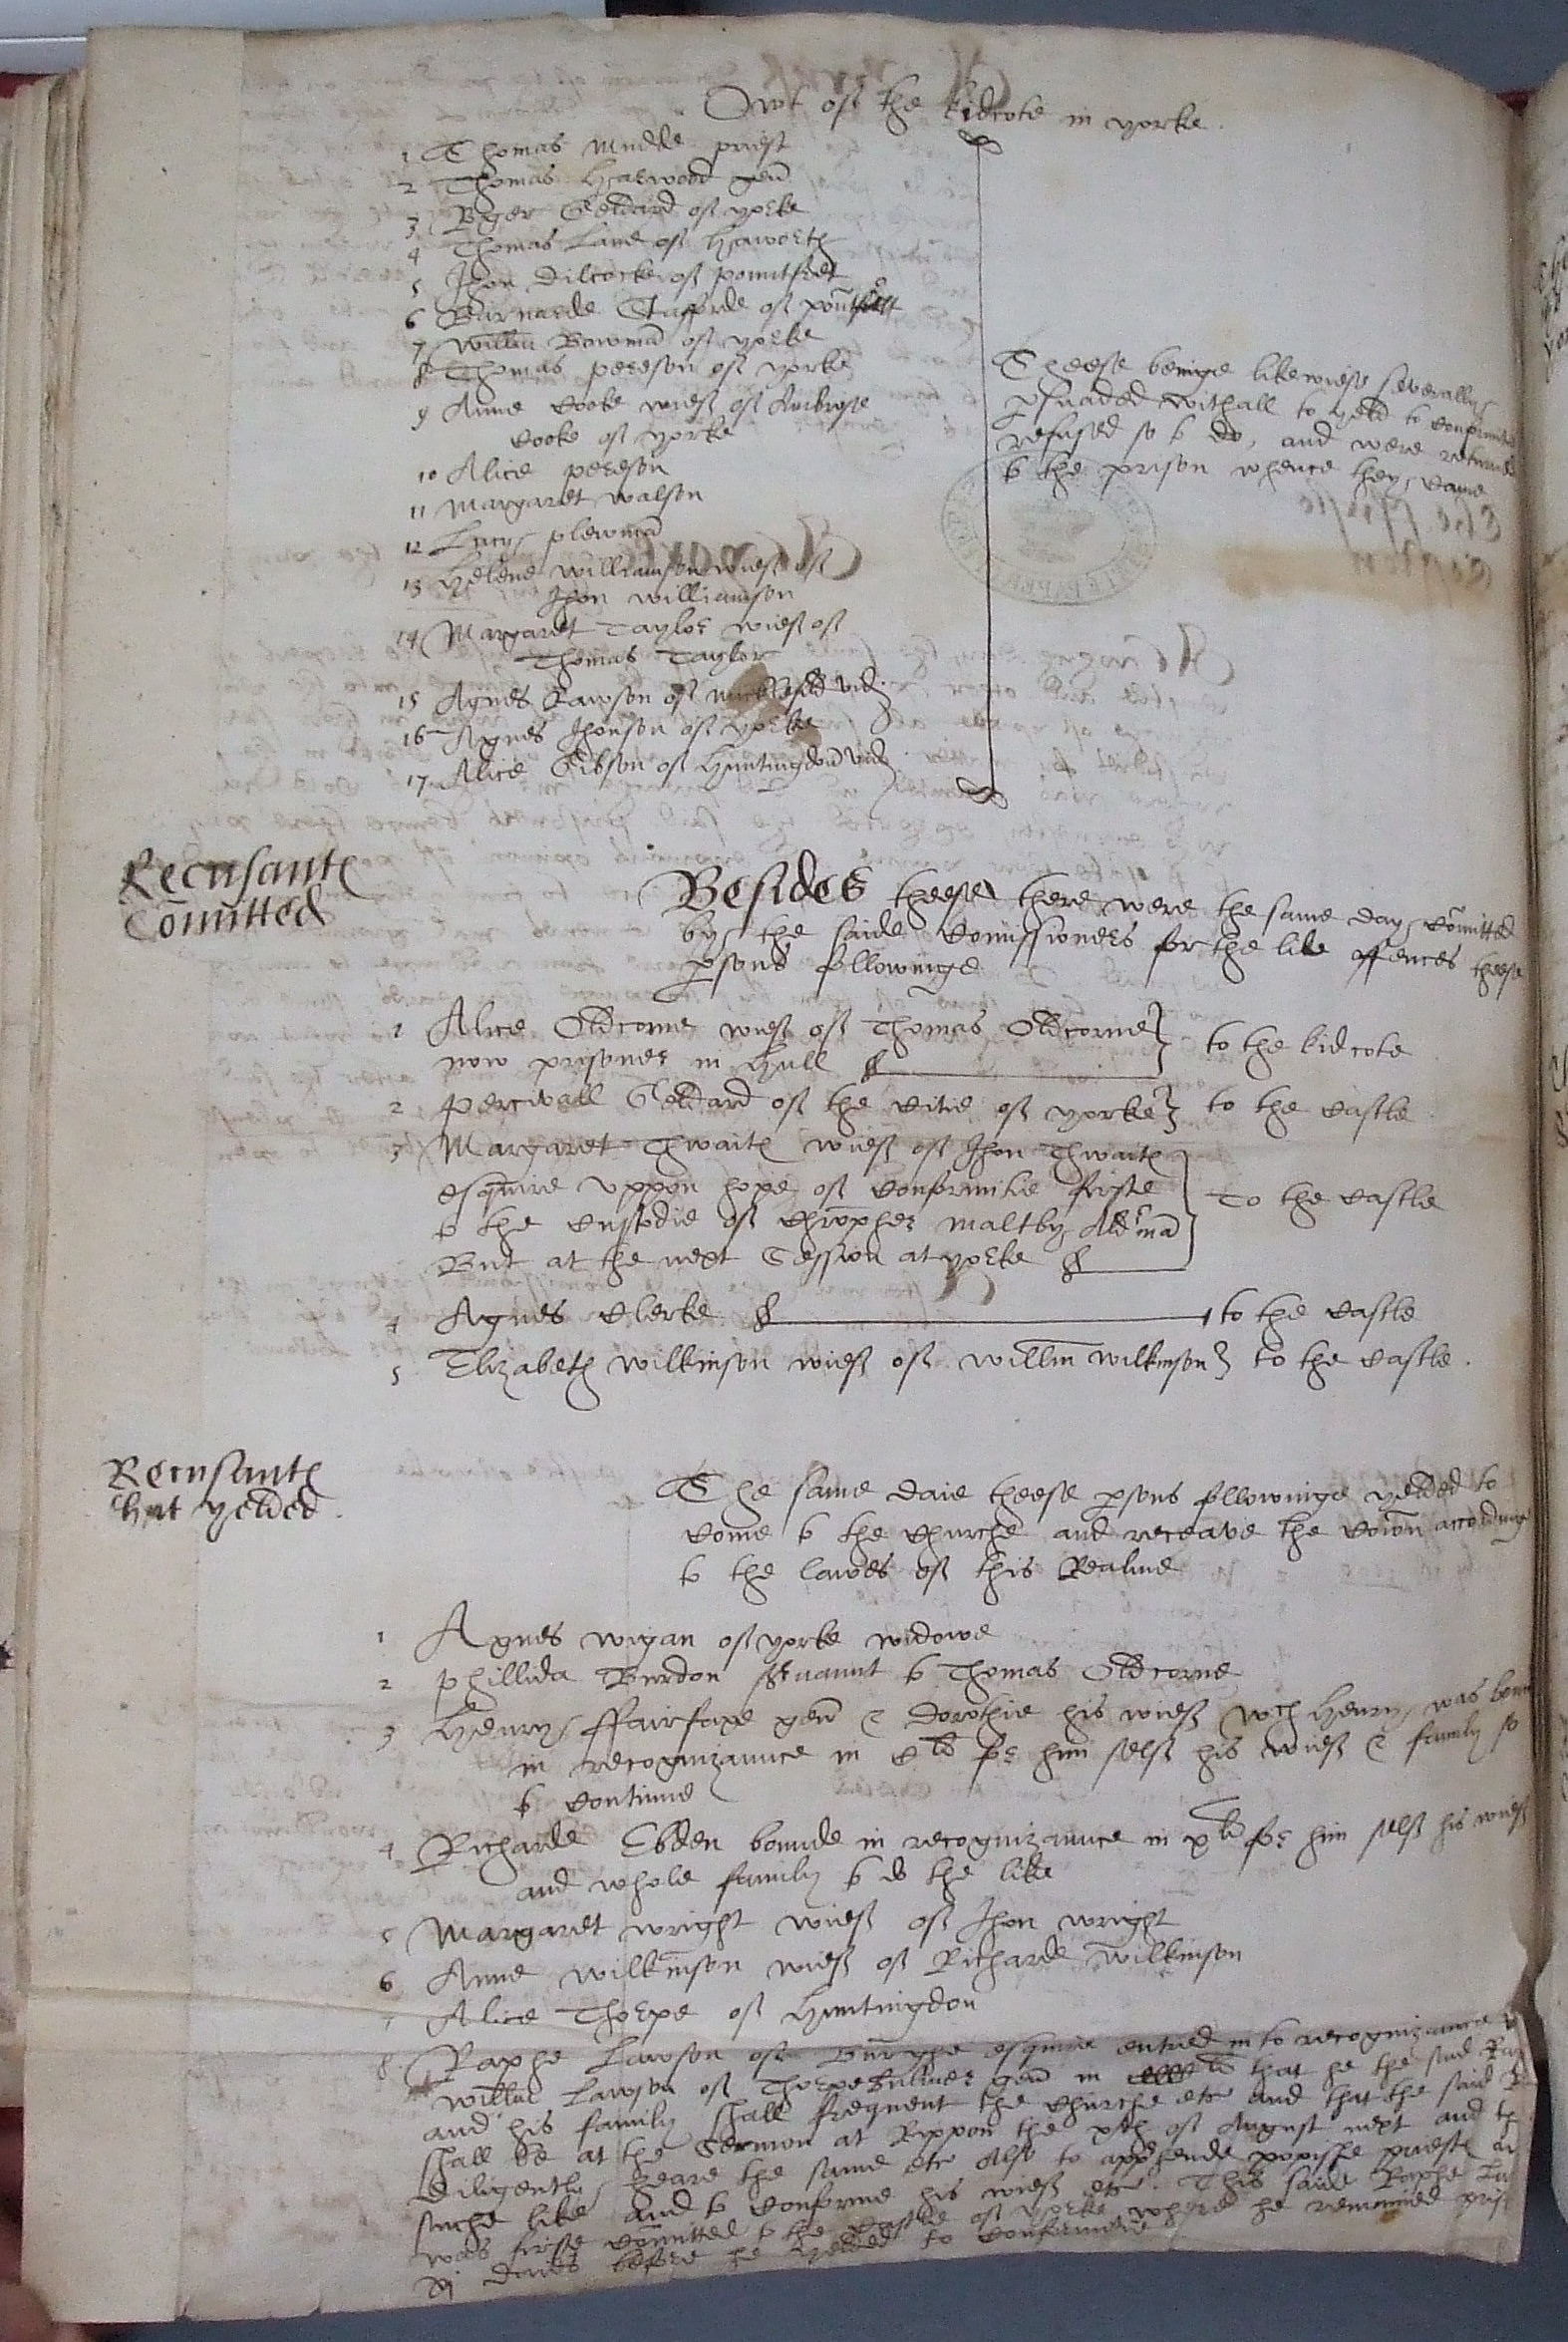 Owt off the kidcote in yorke.
1 Thomas Mudde priest
2 Thomas Harwood gen
3 Roger Geldard off yorke
4 Thomas Lane off Haworth
5 Jhon Dilcocke off pomtfret
6 Barnarde Stafforde off
7 Willm Bowma off yorke
8 Thomas peerson off yorke
9 Anne Cooke wieff off Ambrose
Cooke off yorke
10 Alice peerson
11 Margaret walson
12 Lucy plewma
13 Helene williamson wieff off
Jhon williamson
14 Margaret Taylor wieff off
Thomas Taylor
15 Agnes Lawson off vid.
16 Agnes Jhonson off yorke
17 Alice Gibson off Huntingdon vid.
Theese beinge likewiese severally
psuaded withall to yeld to conformitie
refused so to do, and were returned
to the prison whence they came
Recusantes
Comitted
Besides theese there were the same day comitted
by the saide Comissioners for the like offences theese
psons followinge
1 Alice Oldcorne wieff off Thomas Oldcorne
now prisoner in Hull to the kidcote
2 Percivall Geldard off the Citie off yorke to the Castle
3 Margaret Thwaites wieff off Jhon Thwaites
esquire uppon hope off conformitie firste
to the custodie off Christopher Maltby Alderma
But at the next Session at yorke To the Castle
4 Agnes Clerke to the Castle
5 Elizabeth Wilkinson wieff off Willm Wilkinson to the Castle.
Recusantes
that yelded.
The same daie theese psons followinge yelded to
come to the Churche and receave the Coion accordinge
to the lawes off this Realme
1 Agnes wigan off yorke widowe
2 Phillida Burdon servaunt to Thomas Oldcorne
3 Henry ffairfaxe gen & Dorothie his wieff wch Henry was
in recognizaunce in Cli for him selff his wieff & family so
to continue
4 Richarde Ebden bounde in recognizaunce in xli for him selff his wieff
and whole family to do the like
5 Margaret wright wieff off Jhon wright
6 Anne wilkinson wieff off Richarde wilkinson
7 Alice Thorpe off Huntingdon
8 Raphe Lawson off Burghe esquire entred in to recognizaunce
Willm Lawson off Thorpebulmer gen in that he the said
and his family shall frequent the Churche etc and that the said
shall be at the Sermon at Rippon the xth off August next and
diligently heare the same etc Also to apphende popishe priestes
suche like And to Conforme his wieff etc. This saide Raphe
was firste comitted to the Castle off yorke where he remained
daies before he yelded to conformitie